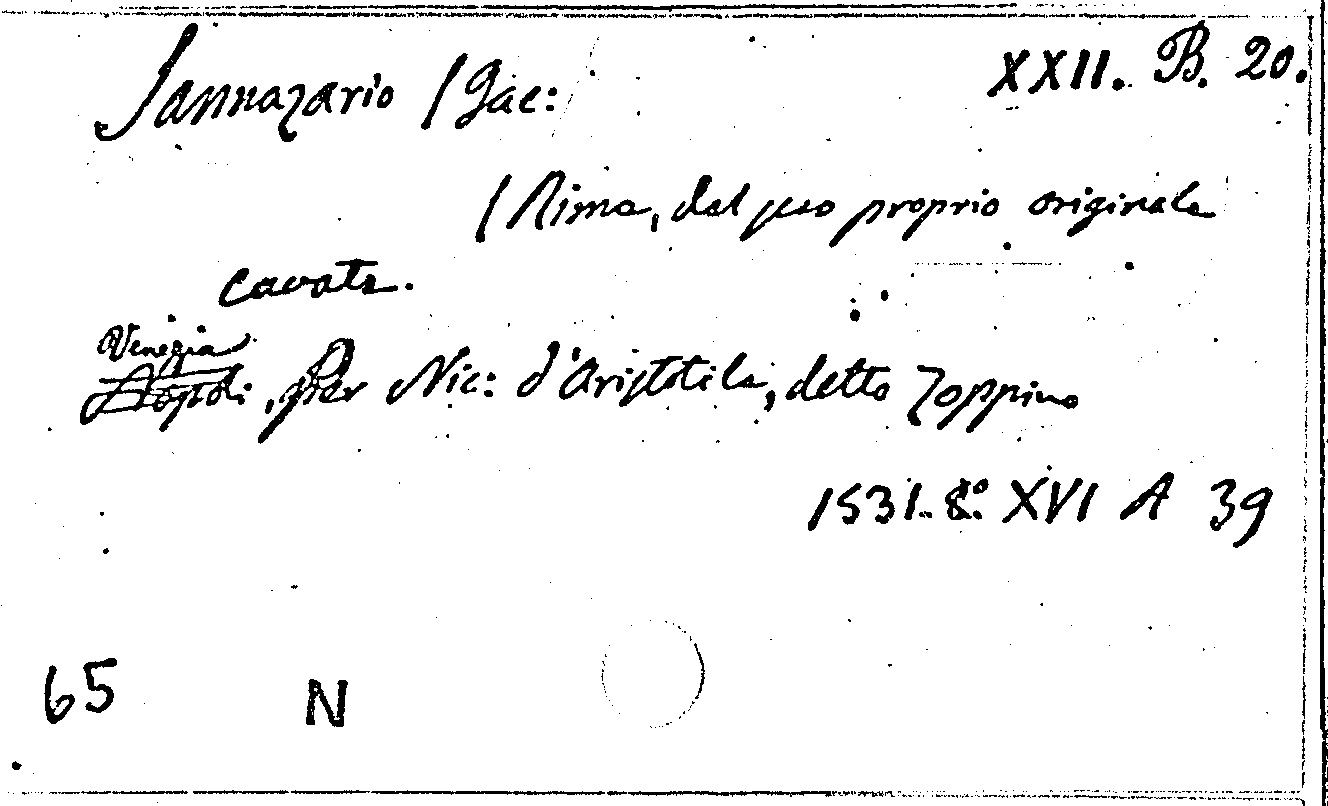 Sannazario /Jac: XXII. B. 20.
/Rime, dal suo proprio originale
cavate.
Venezia
Napoli, Per Nic: d'Aristotile, detto Zoppino
1531. 8.° XVI A 39
65 N